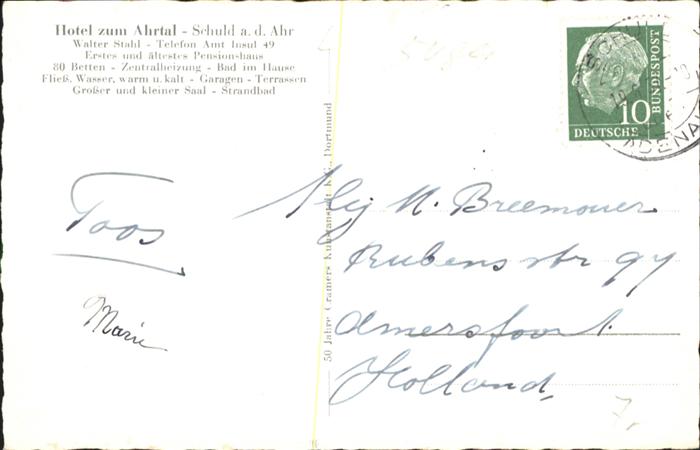 Hotel zum Ahrtal - Schuld a. d. Ahr
Walter Stahl - Telefon Amt Insul 49
Erstes und ältestes Pensionshaus
80 Betten - Zentralheizung - Bad im Hause
Fließ. Wasser, warm u. kalt - Garagen - Terrassen
Großer und kleiner Saal - Strandbad
Toos
Marie
50 Jahre Cramers Kunstanstalt KG., Dortmund
10
DEUTSCHE
BUNDESPOST
SCHULD
ADENAU
M. Breemouer
Rubensstr 97
Amersfoort.
Holland,